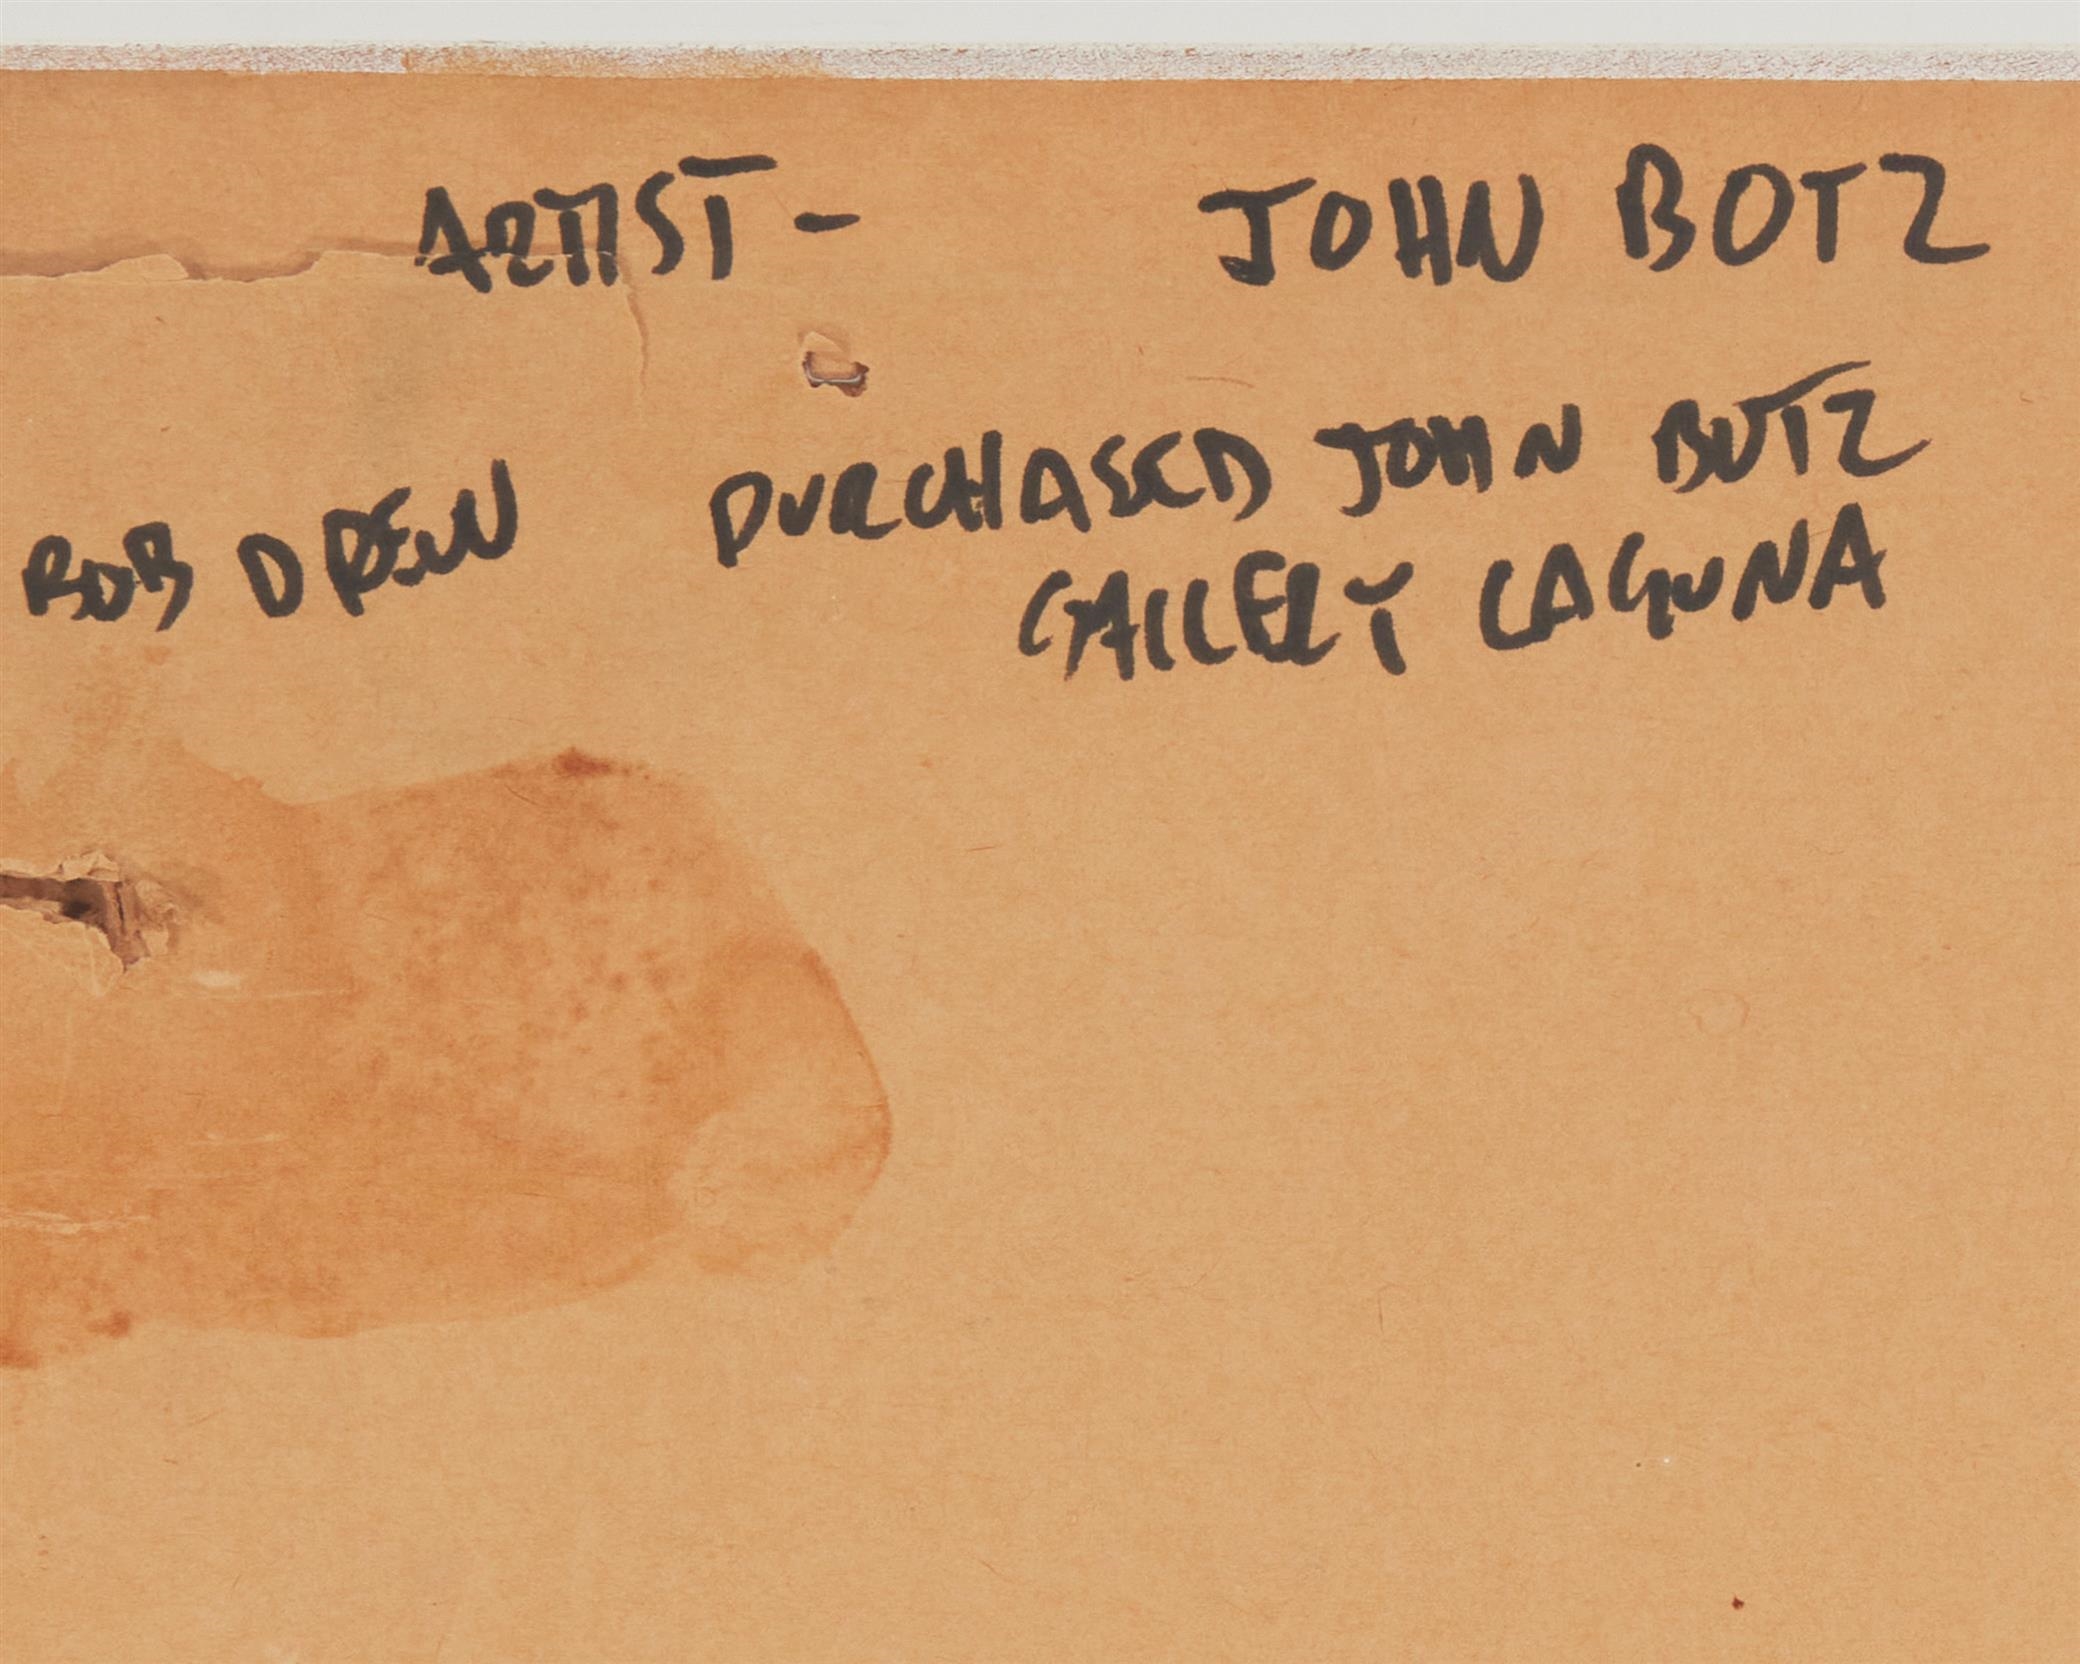 ARTIST - JOHN BOTZ
BOB DREW PURCHASED JOHN BOTZ
GALLERY LAGUNA